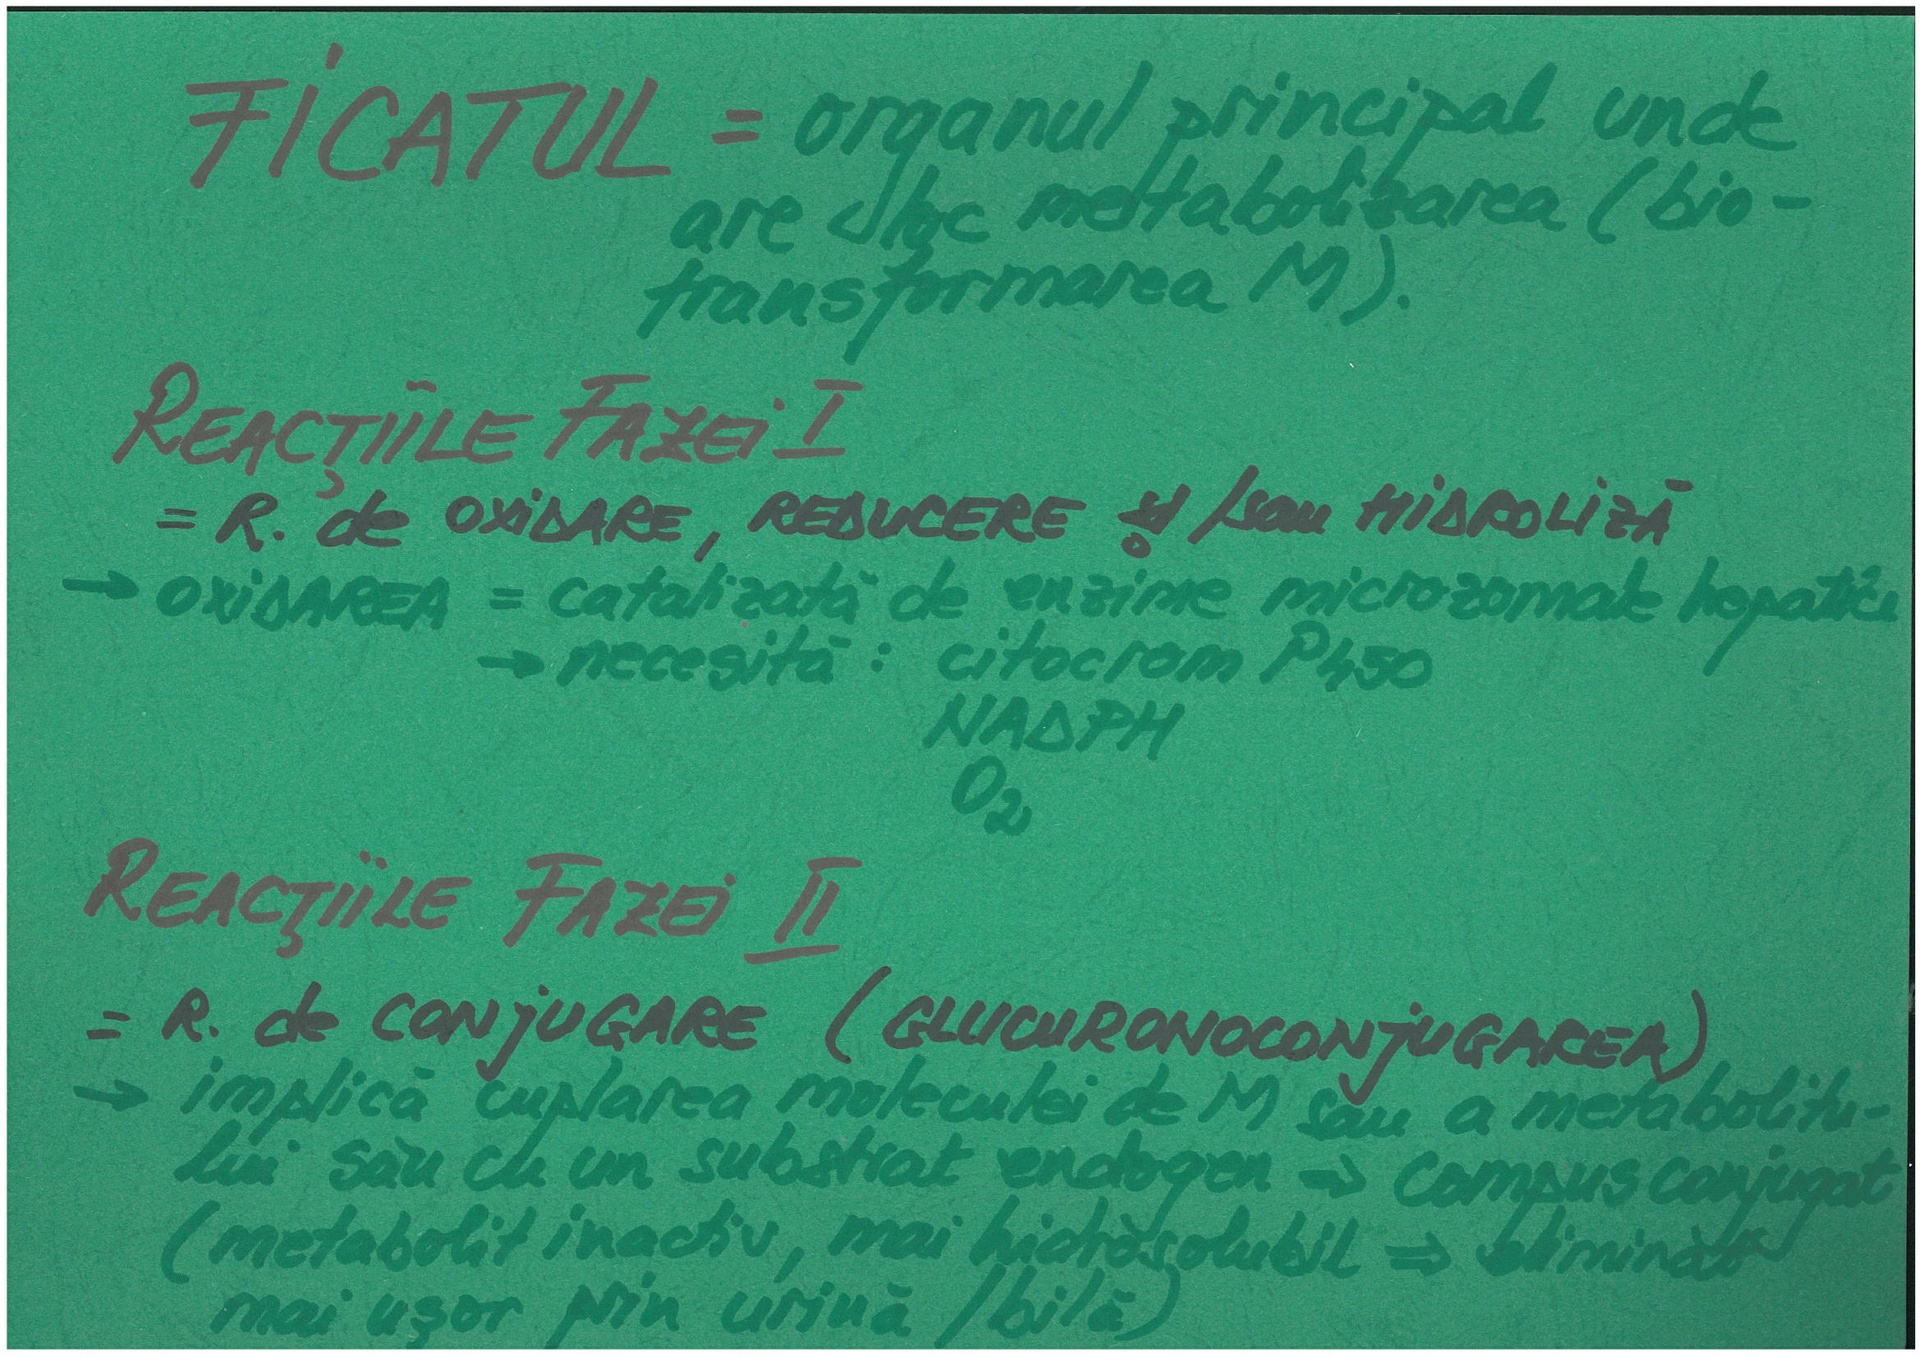 FICATUL = organul principal unde
are loc metabolizarea (bio-
transformarea M).
REACŢIILE FAZEI I
= R. de OXIDARE, REDUCERE şi/sau HIDROLIZĂ
→ OXIDAREA = catalizată de enzime microzomale hepatice
→ necesită : citocrom P450
NADPH
O₂
REACŢIILE FAZEI II
= R. de CONJUGARE (GLUCURONOCONJUGAREA)
→ implică cuplarea moleculei de M sau a metabolitu-
lui său cu un substrat endogen ⇒ compus conjugat
(metabolit inactiv, mai hidrosolubil ⇒ eliminat
mai uşor prin urină /bilă)